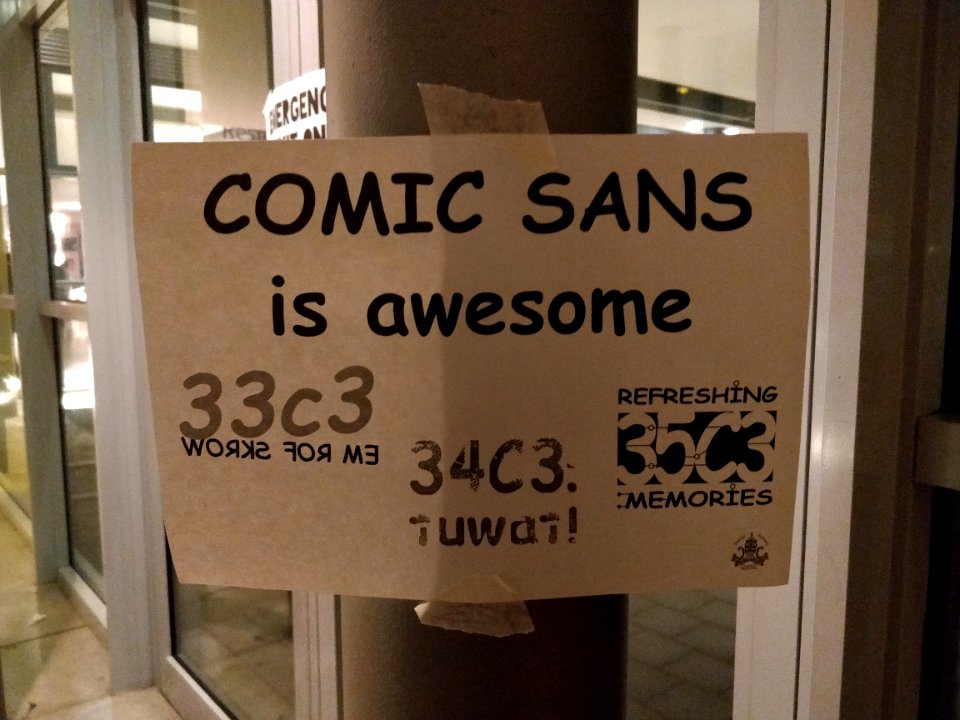 EMERGENC
COMIC SANS
is awesome
33c3
WORKS FOR ME
34C3:
tuwat!
REFRESHING
35C3
:MEMORIES